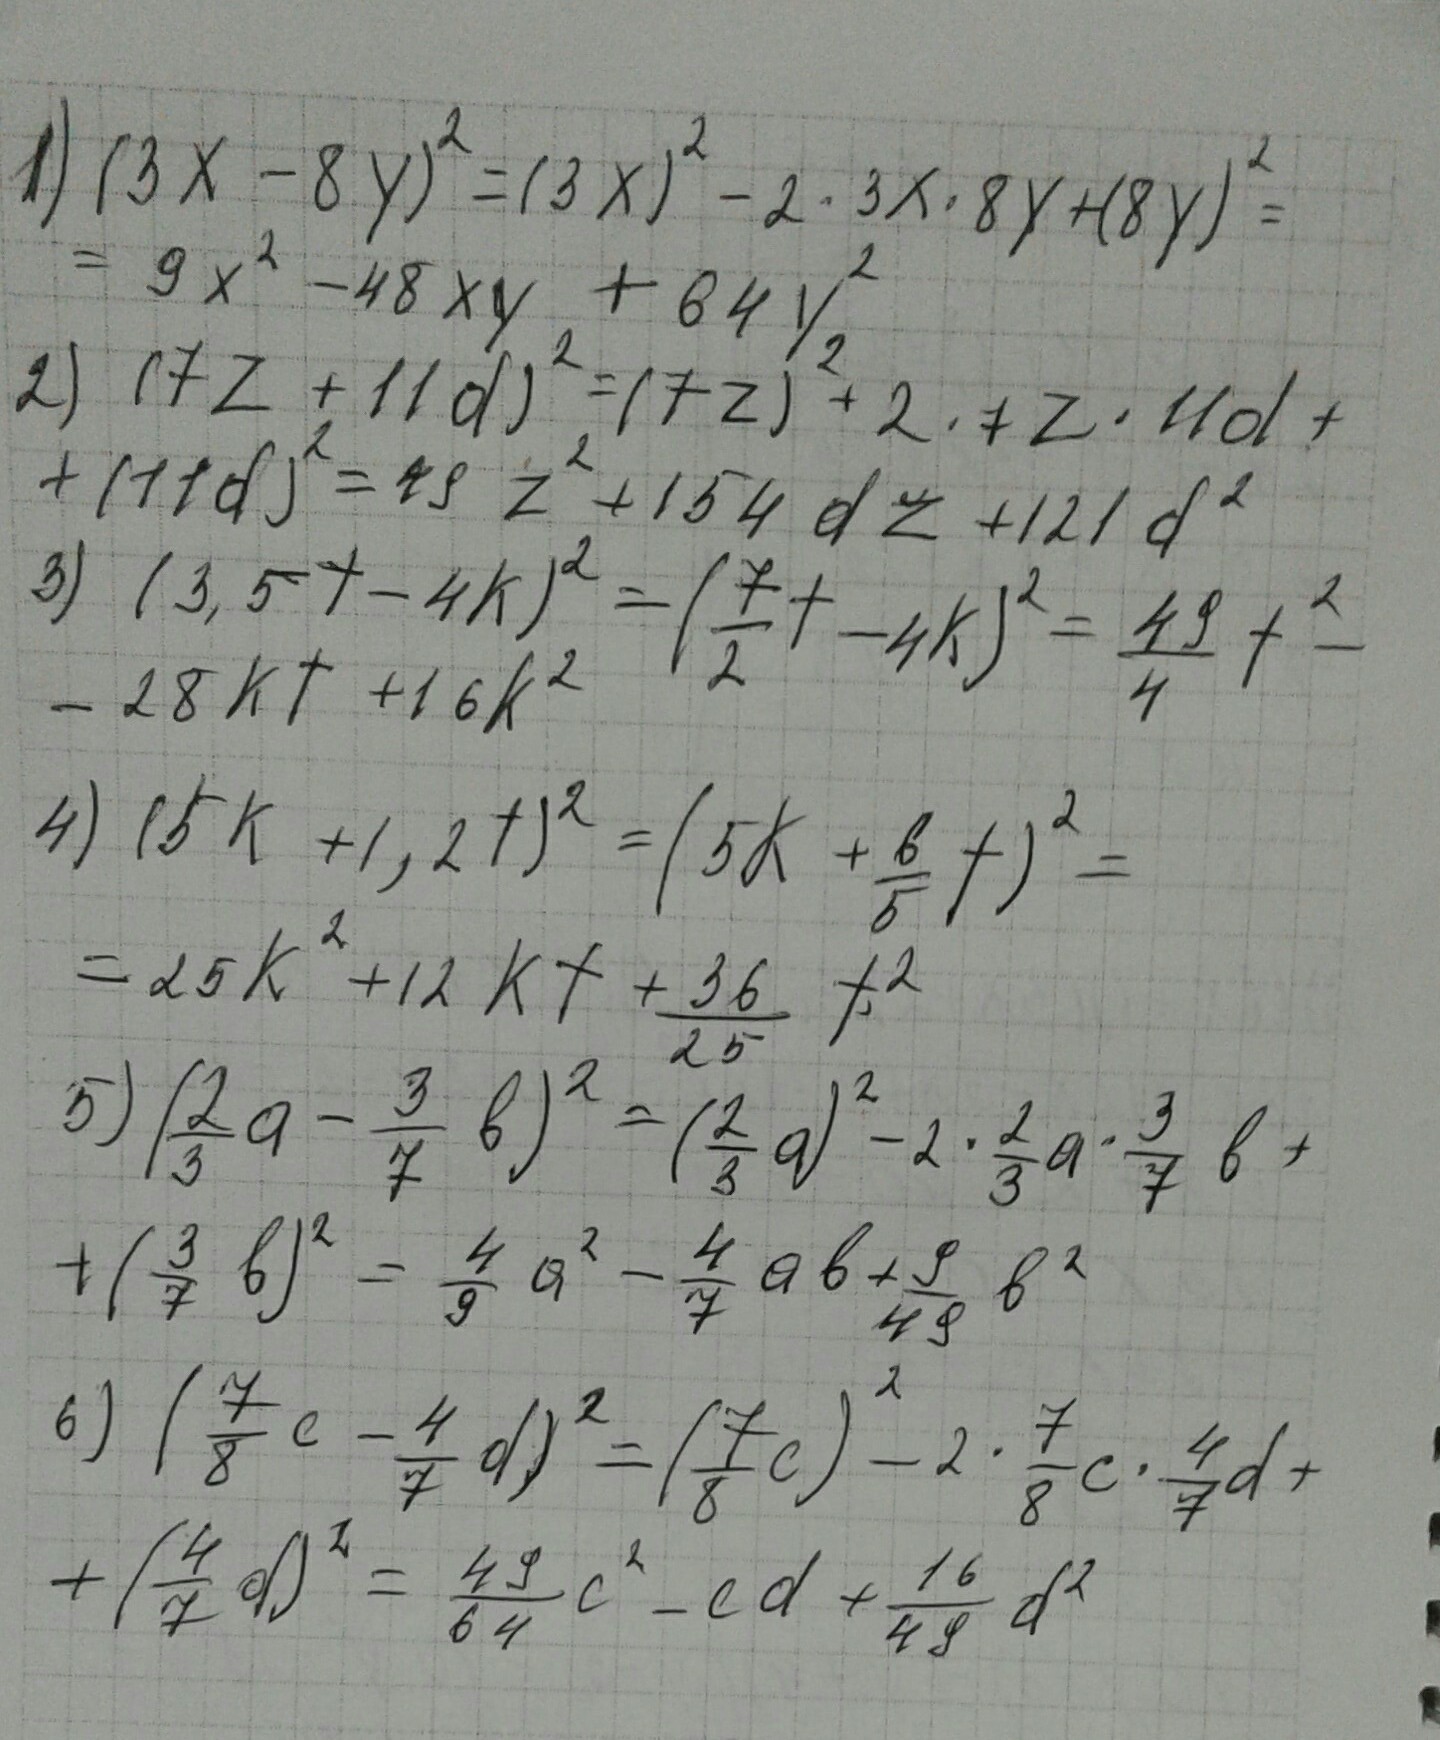 1) (3x - 8y)² = (3x)² - 2 · 3x · 8y + (8y)² =
= 9x² - 48xy + 64y²
2) (7z + 11d)² = (7z)² + 2 · 7z · 11d +
+ (11d)² = 49z² + 154dz + 121d²
3) (3,5t - 4k)² = (7/2 t - 4k)² = 49/4 t² -
- 28kt + 16k²
4) (5k + 1,2t)² = (5k + 6/5 t)² =
= 25k² + 12kt + 36/25 t²
5) (2/3 a - 3/7 b)² = (2/3 a)² - 2 · 2/3 a · 3/7 b +
+ (3/7 b)² = 4/9 a² - 4/7 ab + 9/49 b²
6) (7/8 c - 4/7 d)² = (7/8 c)² - 2 · 7/8 c · 4/7 d +
+ (4/7 d)² = 49/64 c² - cd + 16/49 d²